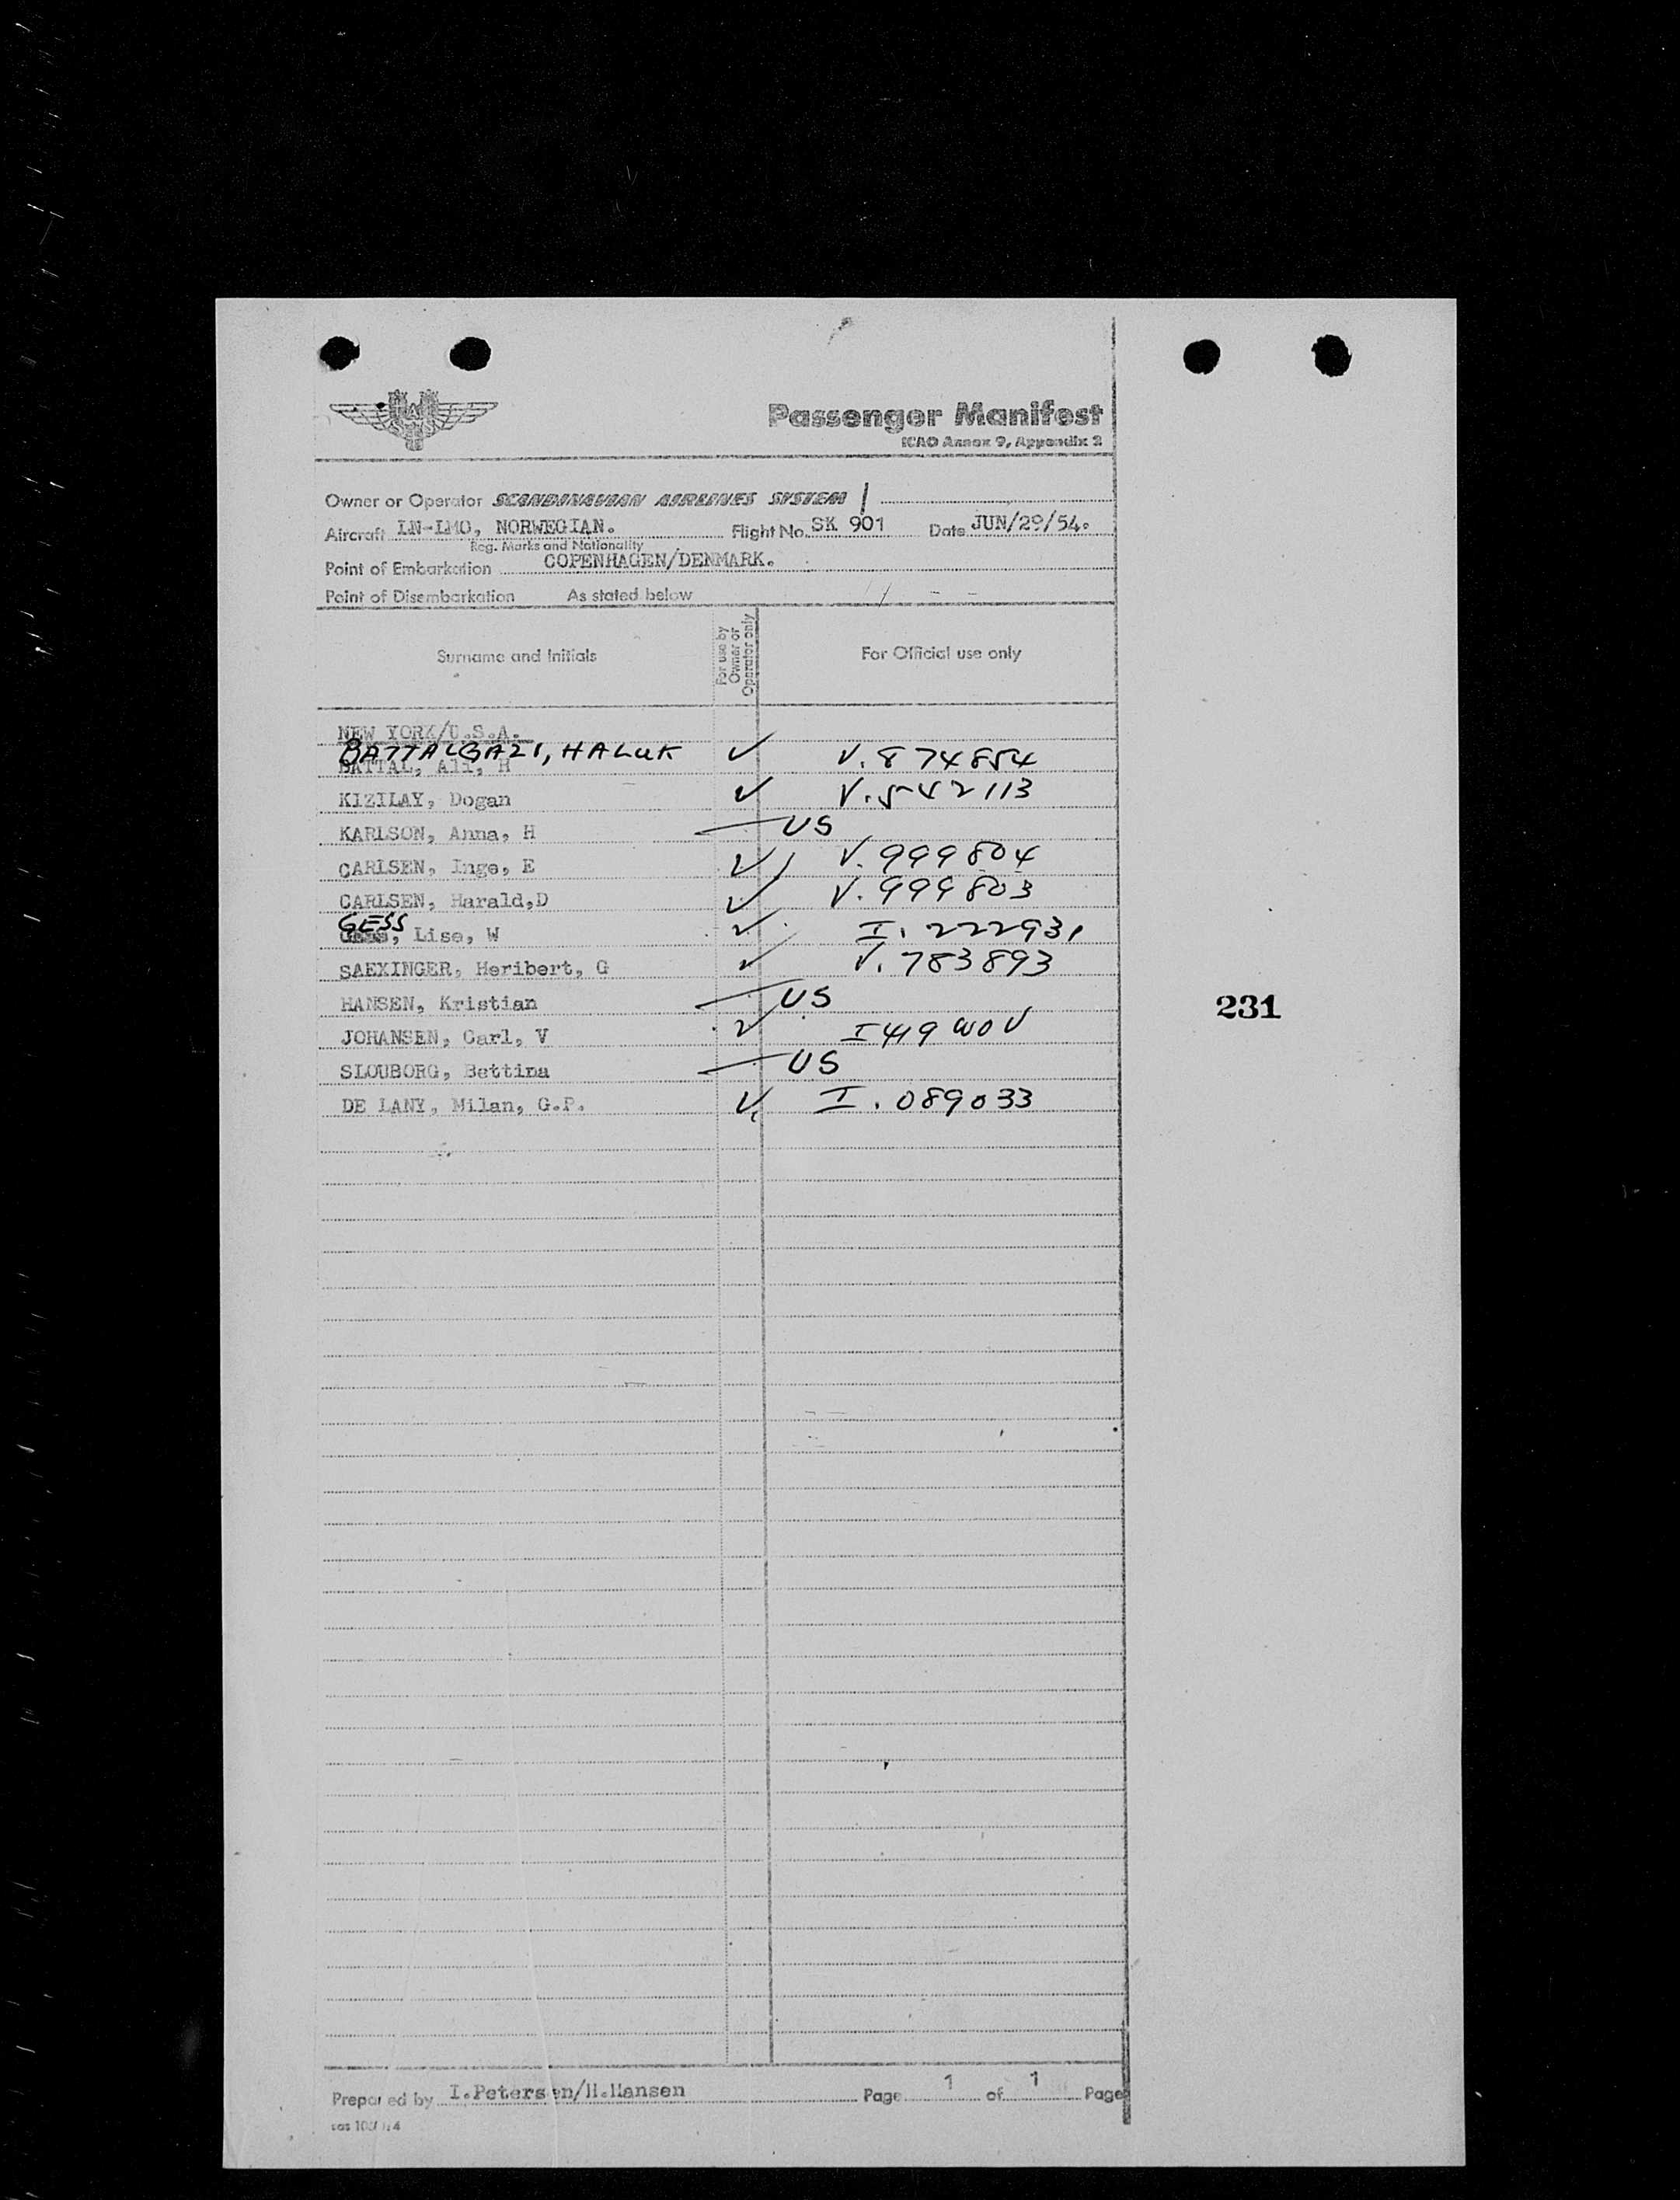 Passenger Manifest
ICAO Annex 9, Appendix 2
Owner or Operator SCANDINAVIAN AIRLINES SYSTEM
Aircraft LN-LMO, NORWEGIAN. Flight No. SK 901 Date JUN/29/54.
Reg. Marks and Nationality
Point of Embarkation COPENHAGEN/DENMARK.
Point of Disembarkation As stated below
Surname and Initials For use by Owner or Operator only For Official use only
NEW YORK/U.S.A.
BATTALGAZI, HALUK ✓ V. 874854
BATTAL, Ali, H
KIZILAY, Dogan ✓ V. 542113
KARLSON, Anna, H — US
CARLSEN, Inge, E ✓ V. 999804
CARLSEN, Harald,D ✓ V. 999803
GESS
, Lise, W ✓ I. 222931
SAEXINGER, Heribert, G ✓ V. 783893
HANSEN, Kristian — US
231
JOHANSEN, Carl, V ✓ I 419
SLOUBORG, Bettina — US
DE LANY, Milan, G.P. ✓ I. 089033
Prepared by I.Petersen/H.Hansen Page 1 of 1 Page
sas